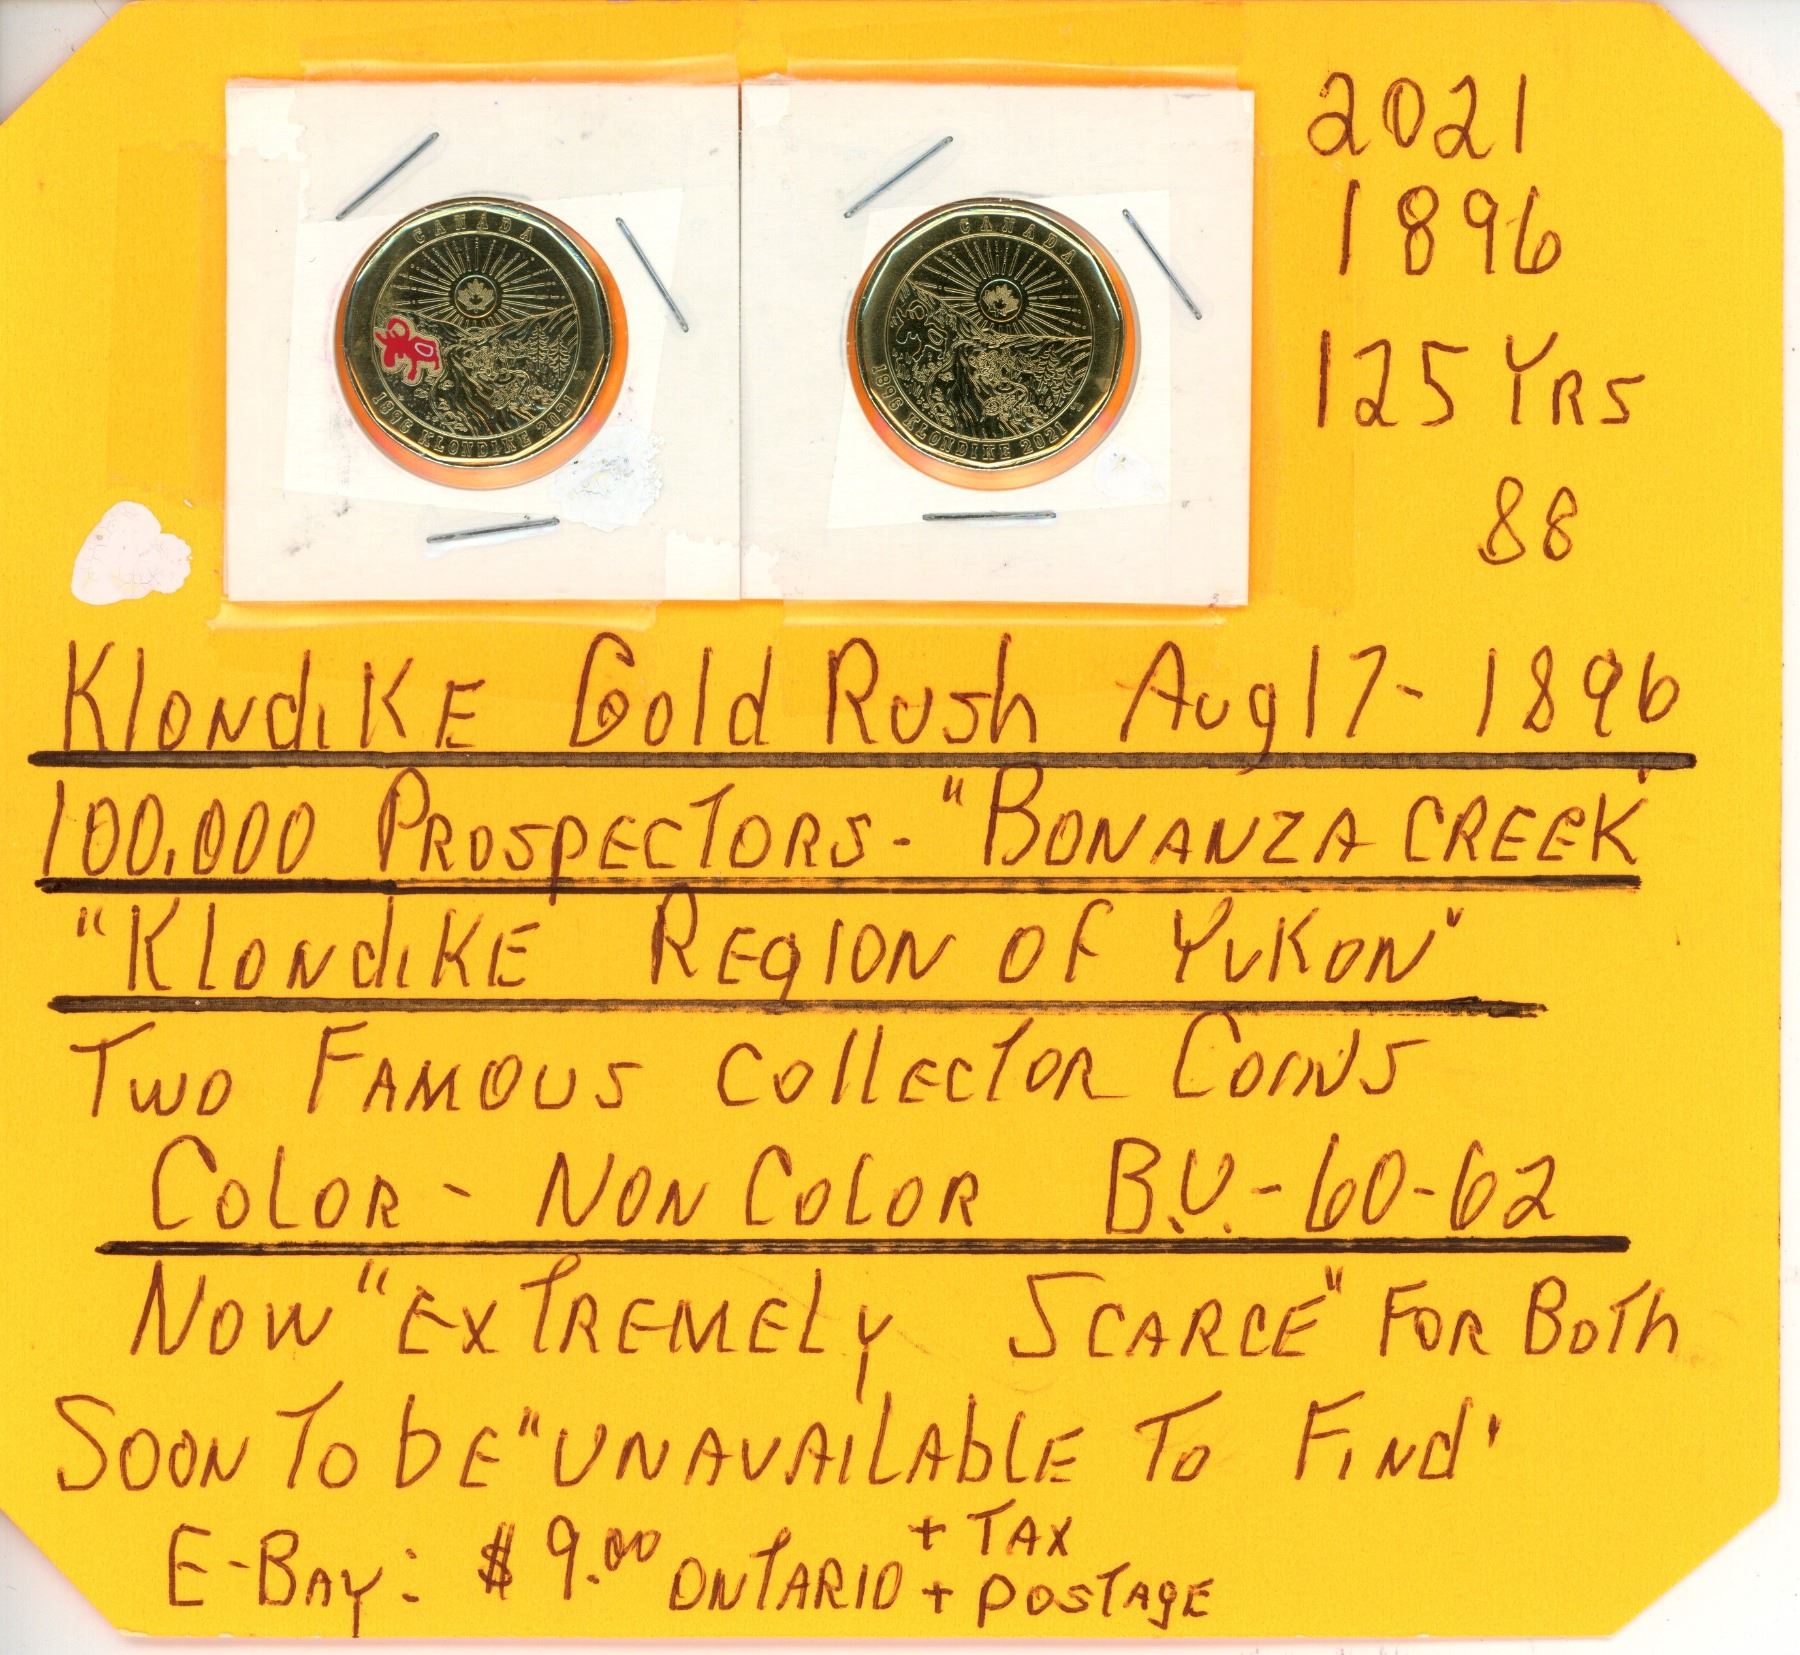 CANADA
1896 KLONDIKE 2021
CANADA
1896 KLONDIKE 2021
2021
1896
125 YRS
88
KlondiKE Gold Rush Aug 17 - 1896
100,000 PROSPECTORS - "BONANZA CREEK"
"KlondiKE REgION OF YUKON"
TWO FAMOUS COllECTOR COINS
COLOR - NON COLOR B.U. - 60-62
NOW "EXTREMELy SCARCE" FOR BOTh
SOON TO bE "UNAVAILAbLE TO FINd"
E-BAY: $9.00 ONTARIO + TAX
+ POSTAgE